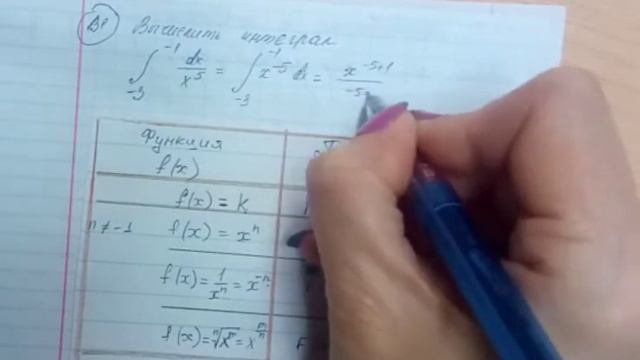 Вычислить интеграл
∫₋₃⁻¹ dx/x⁵ = ∫₋₃⁻¹ x⁻⁵ dx = x⁻⁵⁺¹/-5
Функция
f(x)
f(x) = k
n ≠ -1 f(x) = xⁿ
f(x) = 1/xⁿ = x⁻ⁿ
f(x) = ⁿ√xᵐ = x^(m/n) F